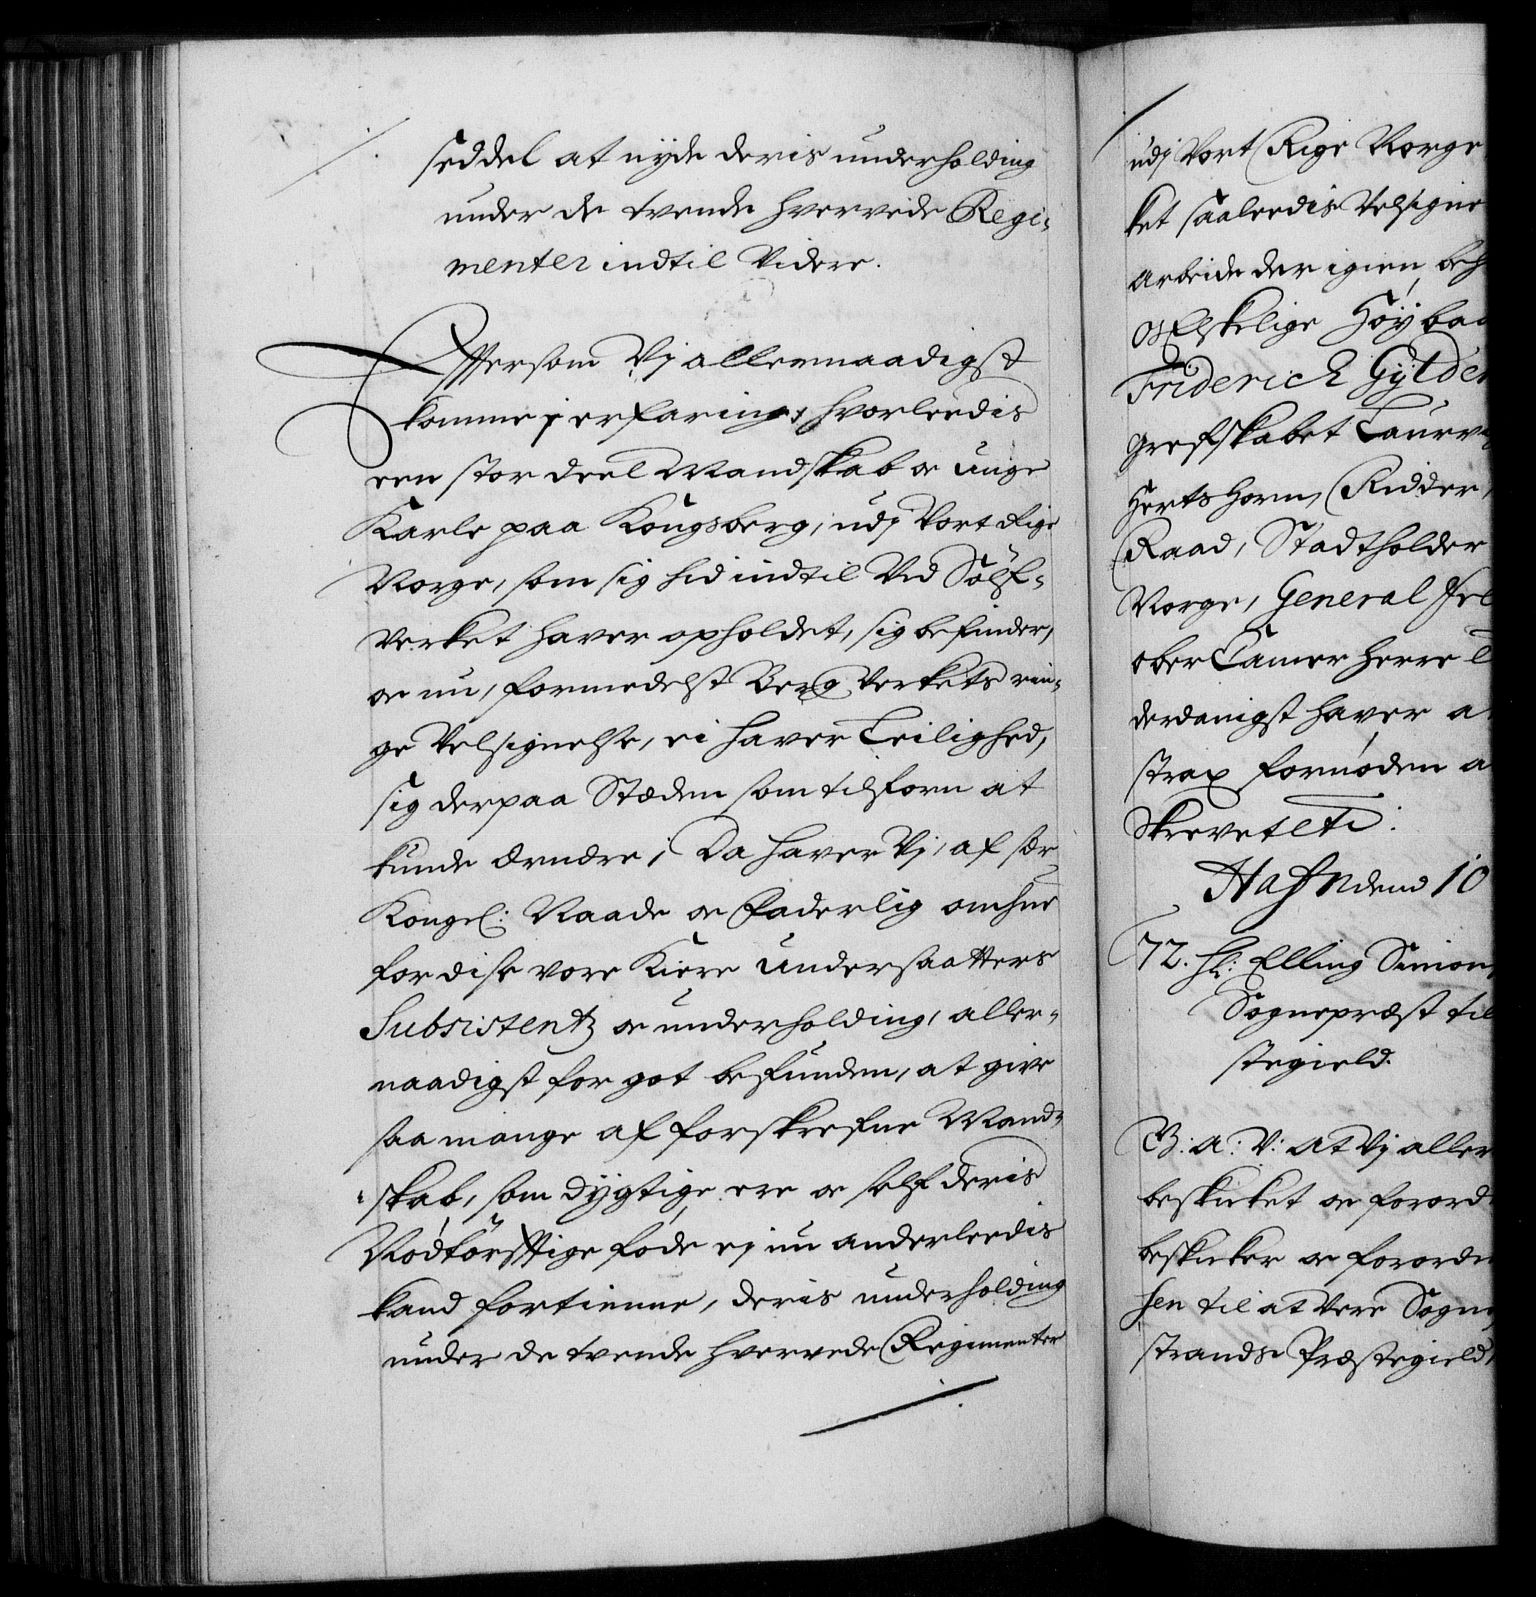 seddel at nyde deris underholding
under de tvende hvervede Regi-
menter indtil Videre.
Eftersom Vj allernaadigst
komme j erfaring, hvorleedis
een stor deel Mandskab oc unge
Karle paa Kongsberg, udj Vort Rige
Norge, som sig hid indtil Ved Sölf-
verket haver opholdet, sig befinder,
oc nu, formedelst Berg Verkets rin-
ge Velsignelse, ei haver Leilighed,
sig der paa Stæden som tilforn at
kunde ernære; Da haver Vj, af sær
Kongel: Naade oc Faderlig omhue
for disse vore Kiere Undersaatters
Subsistentz oc underholding, aller-
naadigst for got befunden, at give
saa mange af forskrefne Mand-
skab, som dygtige ere oc self deris
Nödtörfftige föde ej nu anderleedis
kand fortienne, deris underholding
under de tvende hvervede Regimenter
udj Vort Rige Norge
ket saaleedis Velsigne
Arbeide der igien, beh
os Elskelige Höybaa
Friderich Gylden
Grefskabet Laurv
Hertshorn, Ridder,
Raad, Stadtholder
Norge, General Fel
ober Camer Herre
derdanigst haver a
strax fornöden a
Skrevet etc:
Hafn dend 10
72. Hr: Elling Simon
Sognepræst til
stegield.
G: A: V: At Vj aller
beskicket oc forord
beskicker oc forordn
sen til at Vere Sogn
strands Præstegield,